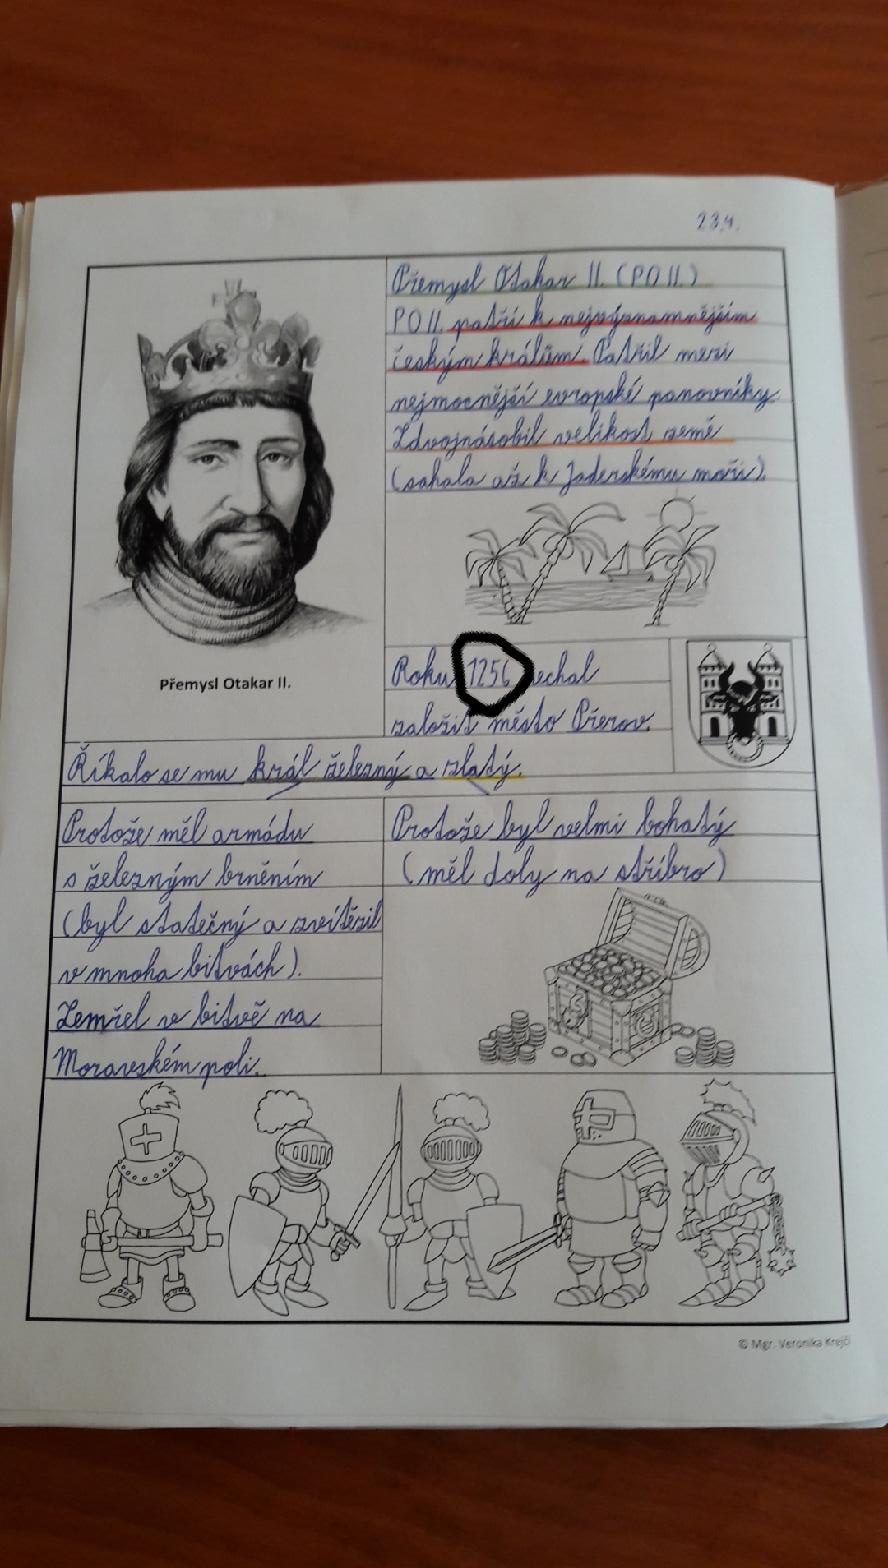 23.4.
Přemysl Otakar II. (PO II.)
PO II. patří k nejvýznamnějším
českým králům. Patřil mezi
nejmocnější evropské panovníky.
Zdvojnásobil velikost země
(sahala až k Jaderskému moři).
Přemysl Otakar II.
Roku 1256 nechal
založit město Přerov.
Říkalo se mu král železný a zlatý.
Protože měl armádu
s železným brněním
(byl statečný a zvítězil
v mnoha bitvách).
Zemřel v bitvě na
Moravském poli.
Protože byl velmi bohatý
(měl doly na stříbro)
© Mgr. Veronika Krejčí